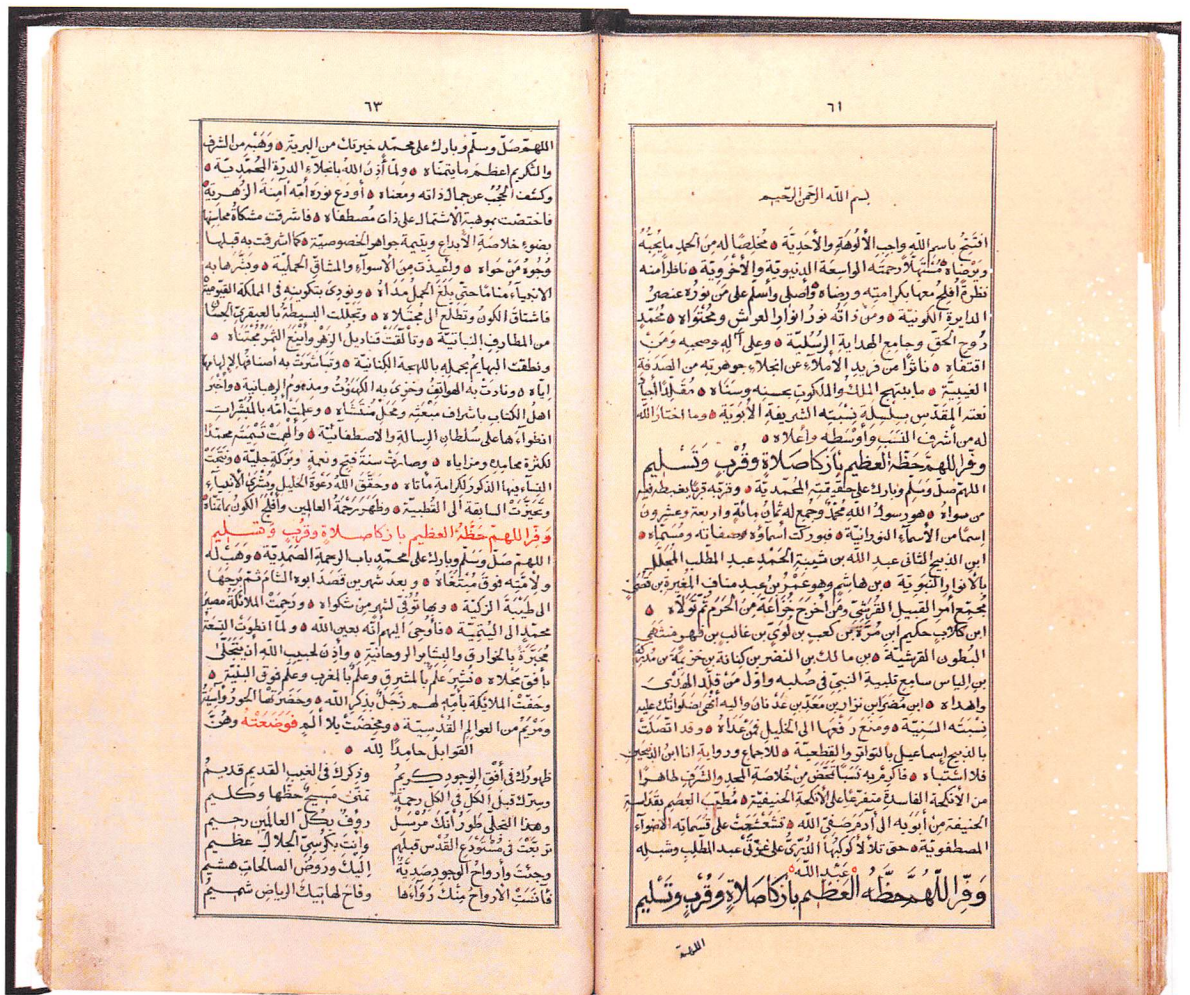 ٦١
بسم الله الرحمن الرحيم
افتتح باسم الله واجب الألوهة والأحدية ۞ مخلصًا له من الحمد ما يحبه
ويرضاه مستهلًا رحمته الواسعة الدنيوية والأخروية ۞ ناظرا منه
نظرة أفلح معها بكرامته ورضاه ۞ وأصلى وأسلم على من نوره عنصر
الدايرة الكونية ۞ ومن ذاته نور انوار العرش ومحتواه ۞ محمد
روح الحق وجامع الهداية الرسلية ۞ وعلى آله وصحبه ومن
اقتفاه ۞ ناثرا من فريد الإملاء عن انجلاء جوهريته من الصدفة
الغيبية ۞ ما يبتهج الملك والملكوت بحسنه وسناه ۞ مقلدا أجياد
نعته المقدس بسلسلة نسبته الشريفة الأبوية ۞ وما اختار الله
له من أشرف النسب وأوسطه وأعلاه ۞
وفر اللهم حظه العظيم بازكا صلاة وقرب وتسليم
اللهم صل وسلم وبارك على حقيقته المحمدية ۞ وقربه قربا يغبطه فيه
من سواه ۞ هو رسول الله محمد وجمع له ثمان مائة واربعة وعشرون
إسما من الأسماء النورانية ۞ فبوركت أسماؤه وصفاته ومسماه ۞
ابن الذبيح الثانى عبد الله بن شيبة الحمد عبد المطلب المجلل
بالأنوار النبوية ۞ بن هاشم وهو عمرو بن عبد مناف المغيرة بن قصى
مجتمع أمر القبيل القرشى ومن أخرج خزاعة من الحرم ثم تولاه ۞
ابن كلاب حكيم ابن مرة بن كعب بن لوى بن غالب بن فهر منتهى
البطون القرشية ۞ بن مالك بن النضر بن كنانة بن خزيمة بن مدركة
بن الياس سامع تلبية النبى فى صلبه واول من قلد الهدى
واهداه ۞ ابن مضر ابن نزار بن معد بن عدنان واليه أنهى صلوات الله عليه
نسبته السنية ۞ ومنع رفعها الى الخليل فمن عداه ۞ وقد اتصلت
بالذبيح إسماعيل بالتواتر والقطعية ۞ للاجماع ورواية انا ابن الذبيحين
فلا اشتباه ۞ فاكرم به نسبا تمحض من خلاصة المجد والشرف طاهرا
من الأنكحة الفاسدة متفرعا على الأنكحة الحنيفية ۞ مطيب العصم بقداسة
الحنيفة من أبويه الى أدم صفى الله ۞ تشعشعت على قسماته الأضواء
المصطفوية ۞ حتى تلألأ كوكبها الدرى على غرتى عبد المطلب وشبله
عبد الله
وفر اللهم حظه العظيم بازكا صلاة وقرب وتسليم
اللهم
٦٣
اللهم صل وسلم وبارك على محمد خيرتك من البرية ۞ وهبه من الشرف
والتكريم اعظم ما يتمناه ۞ ولما أذن الله بانجلاء الدرة المحمدية ۞
وكشف الحجب عن جمال ذاته ومعناه ۞ أودع نوره أمه آمنة الزهرية
فاختصت بموهبة الاشتمال على ذات مصطفاه ۞ فاشرقت مشكاة محاسنها
بضوء خلاصة الأبداع ويتيمة جواهر الخصوصية ۞ كما اشرقت به قبلها
وجوه من حواه ۞ وأعيذت من الاسواء والمشاق الحملية ۞ وبشرها به
الانبياء مناما حتى بلغ الحمل مداه ۞ ونودى بتكوينه فى المملكة القيومية
فاشتاق الكون وتطلع الى مجتلاه ۞ وتجللت البسيطة بالعبقرى الحسان
من المطارف النباتية ۞ وتألقت قناديل الزهر وأينع الثمر لمجتناه ۞
ونطقت البهايم بحمله باللهجة الكنانية ۞ وتباشرت به أصنافها لإلهامها
إياه ۞ ونادت به الهواتف وخزى به الكهنوت ومذموم الرهبانية ۞ واخبر
اهل الكتاب باشراف مبعثه ومحل منتشاه ۞ وعلمت أمه بالمبشرات
انطواءها على سلطان الرسالة والاصطفائية ۞ وألهمت تسميته محمدا
لكثرة محامده ومزاياه ۞ وصارت سنة فتح ونعمة وبركة جلية ۞ ونتجت
النساء فيها الذكور لكرامة مأتاه ۞ وحقق الله دعوة الخليل وبشرى الأنبياء
وتحيزت السابقة الى القطبية ۞ وظهر رحمة العالمين وأفلح الكون بما تمناه
وفر اللهم حظه العظيم بازكا صلاة وقرب وتسليم
اللهم صل وسلم وبارك على محمد باب الرحمة الصمدية ۞ وهب له
ولأمته فوق مبتغاه ۞ وبعد شهرين قصد ابوه الشام ثم برحها
الى طيبة الزكنة ۞ وبها توفى لشهر من شكواه ۞ ورحمت الملائكة مصير
محمد الى اليتمية ۞ فأوحى اليهم أنه بعين الله ۞ ولما انطوت التسعة
مخبرة بالخوارق والبشاير الروحانية ۞ وأذن لحبيب الله أن يتجلى
بافق مجلاه ۞ نشر علم بالمشرق وعلم بالمغرب وعلم فوق البنية ۞
وحفت الملائكة بأمه لهم زجل بذكر الله ۞ وحضرتها الحور وآسية
ومريم من العوالم القدسية ۞ ومخضت بلا ألم فوضعته وهنت
القوابل حامدا لله ۞
ظهورك فى أفق الوجود كريم وذكرك فى الغيب القديم قديم
وسرك قبل الكل فى الكل رحمة تمنى مسيح حظها وكليم
وهذا التجلى طور أنك مرسل رؤف بكل العالمين رحيم
تربعت فى مستودع القدس قبلهم وأنت بكرسى الجلال عظيم
وجئت وأرواح الوجود صدية إليك وروض الصالحات هشيم
فآنست الارواح منك رواءها وفاح لهاتيك الرياض شميم